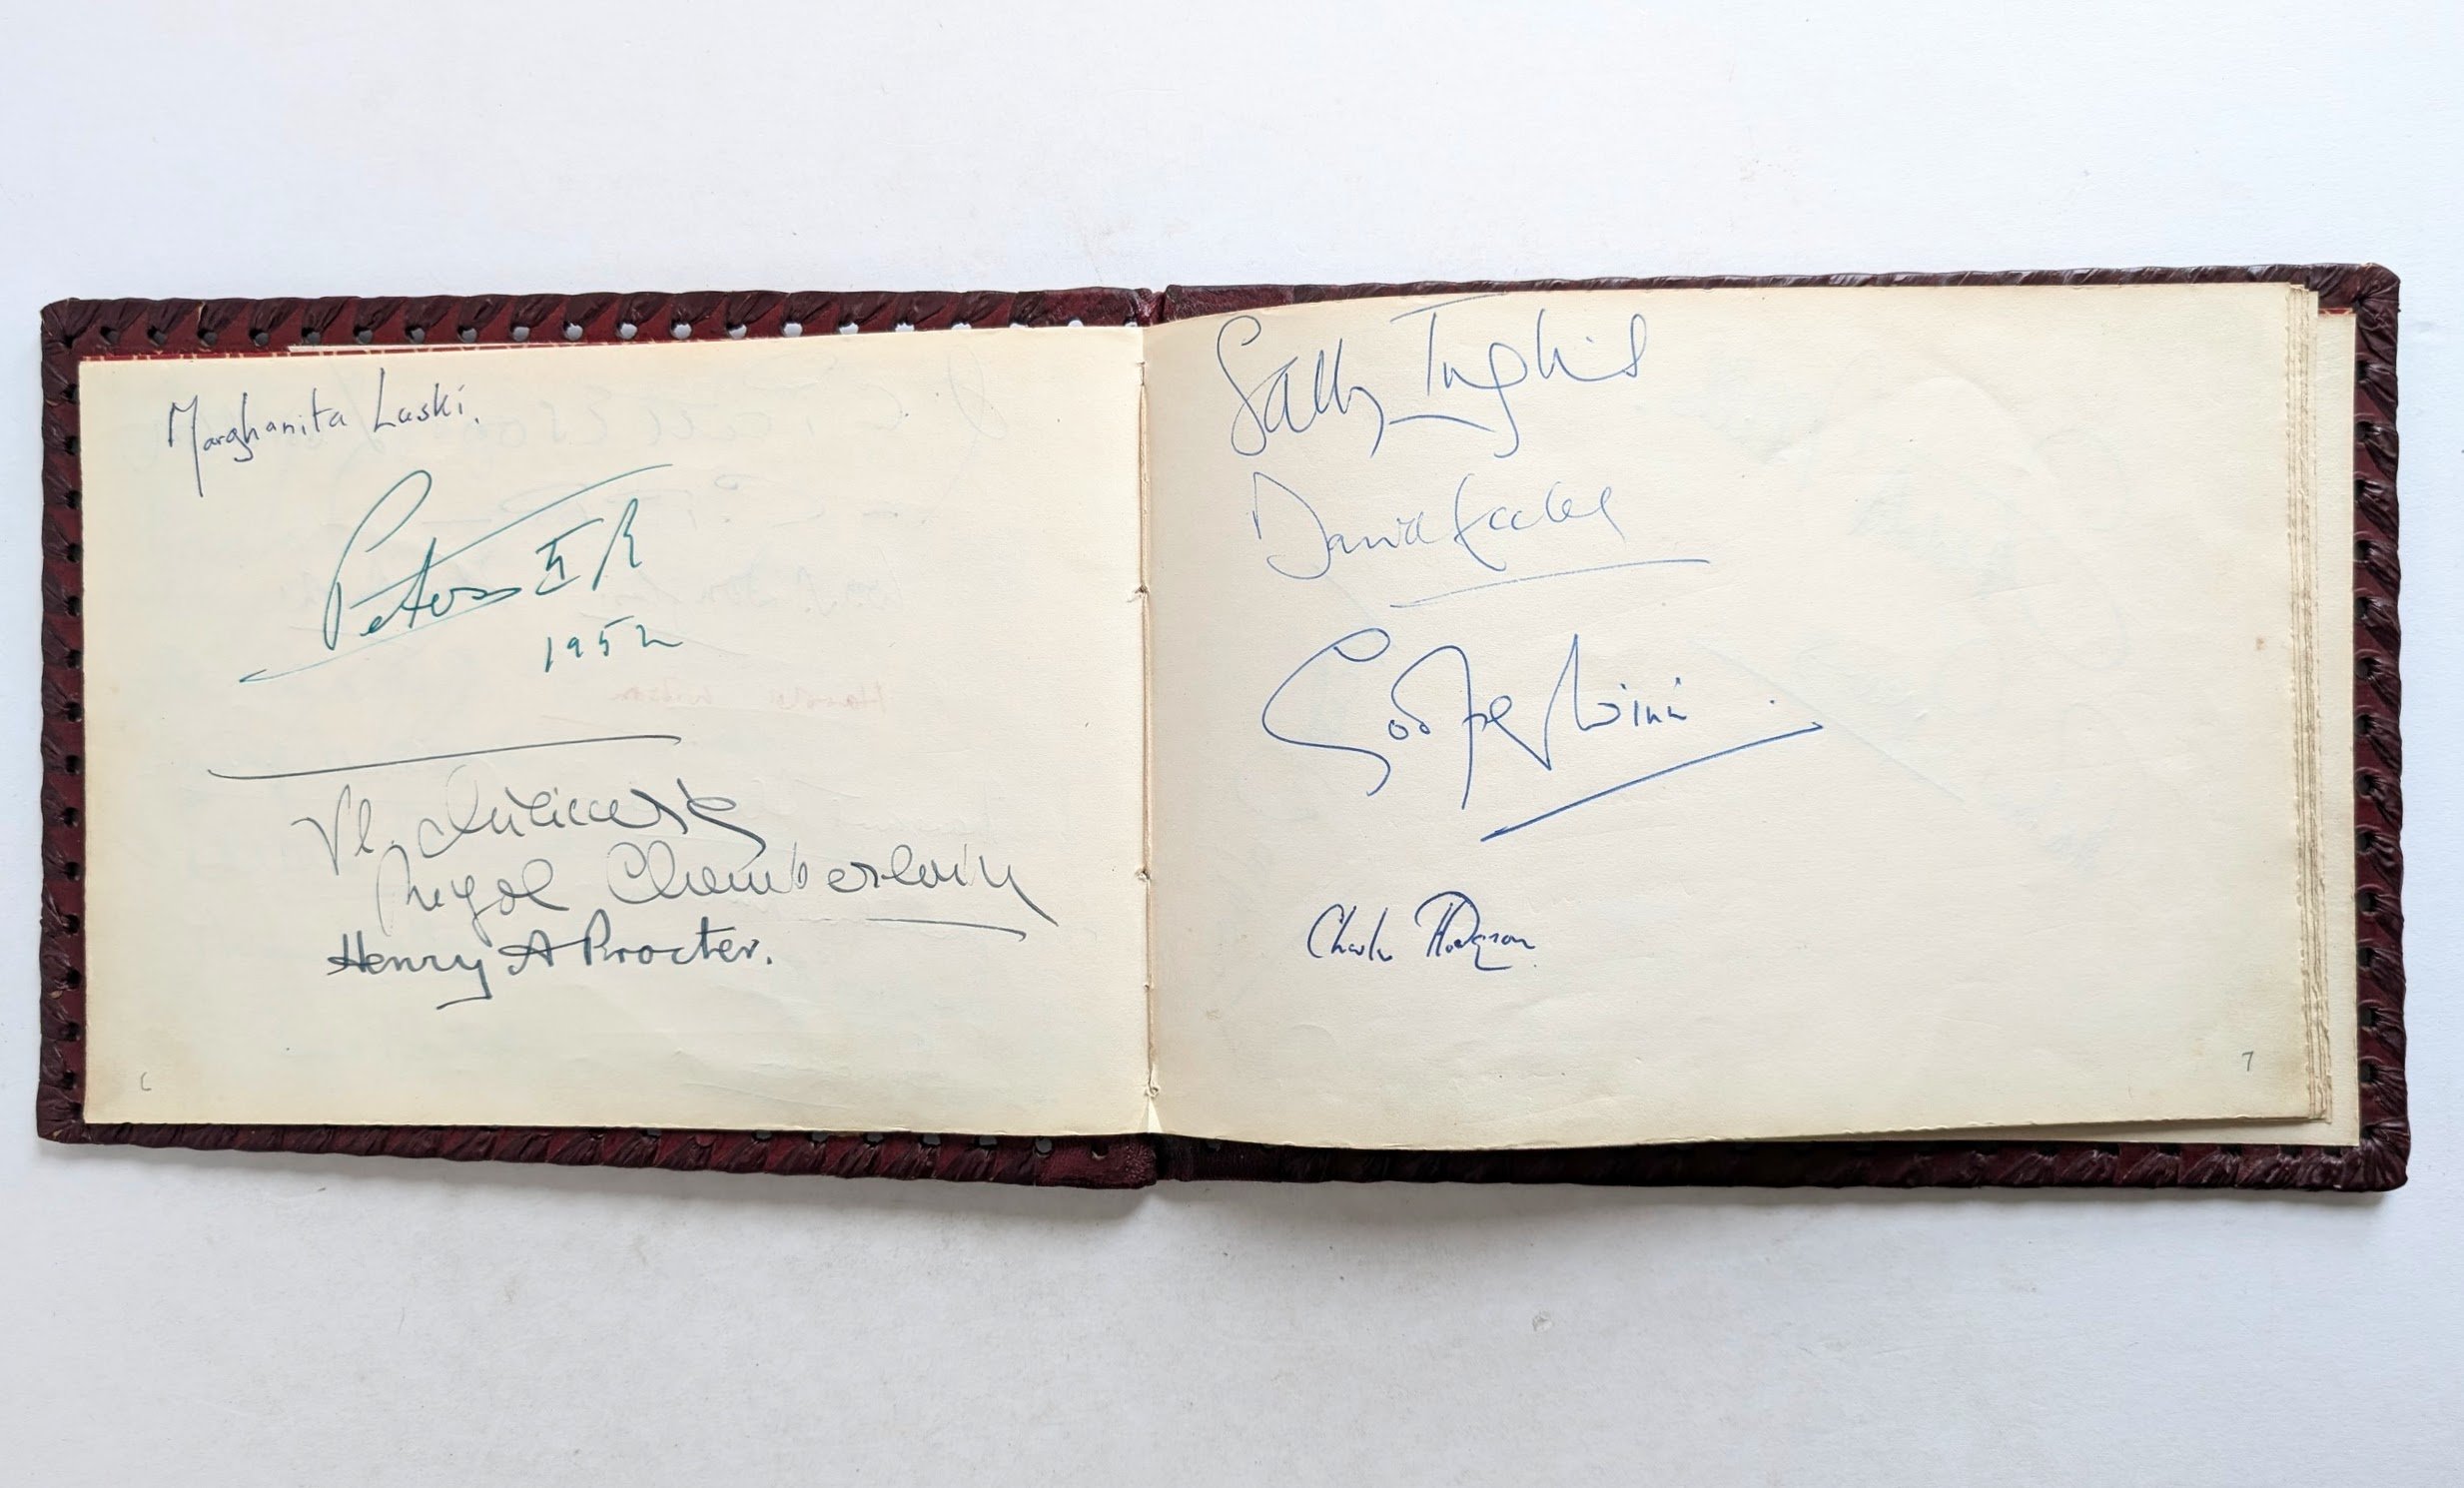 Marghanita Laski.
Petar II R
1952
Vl.
Nigol Chamberlain
Henry A Procter.
6
Sally Inglis
David Eccles
Godfrey Winn
Charles Hodgson
7